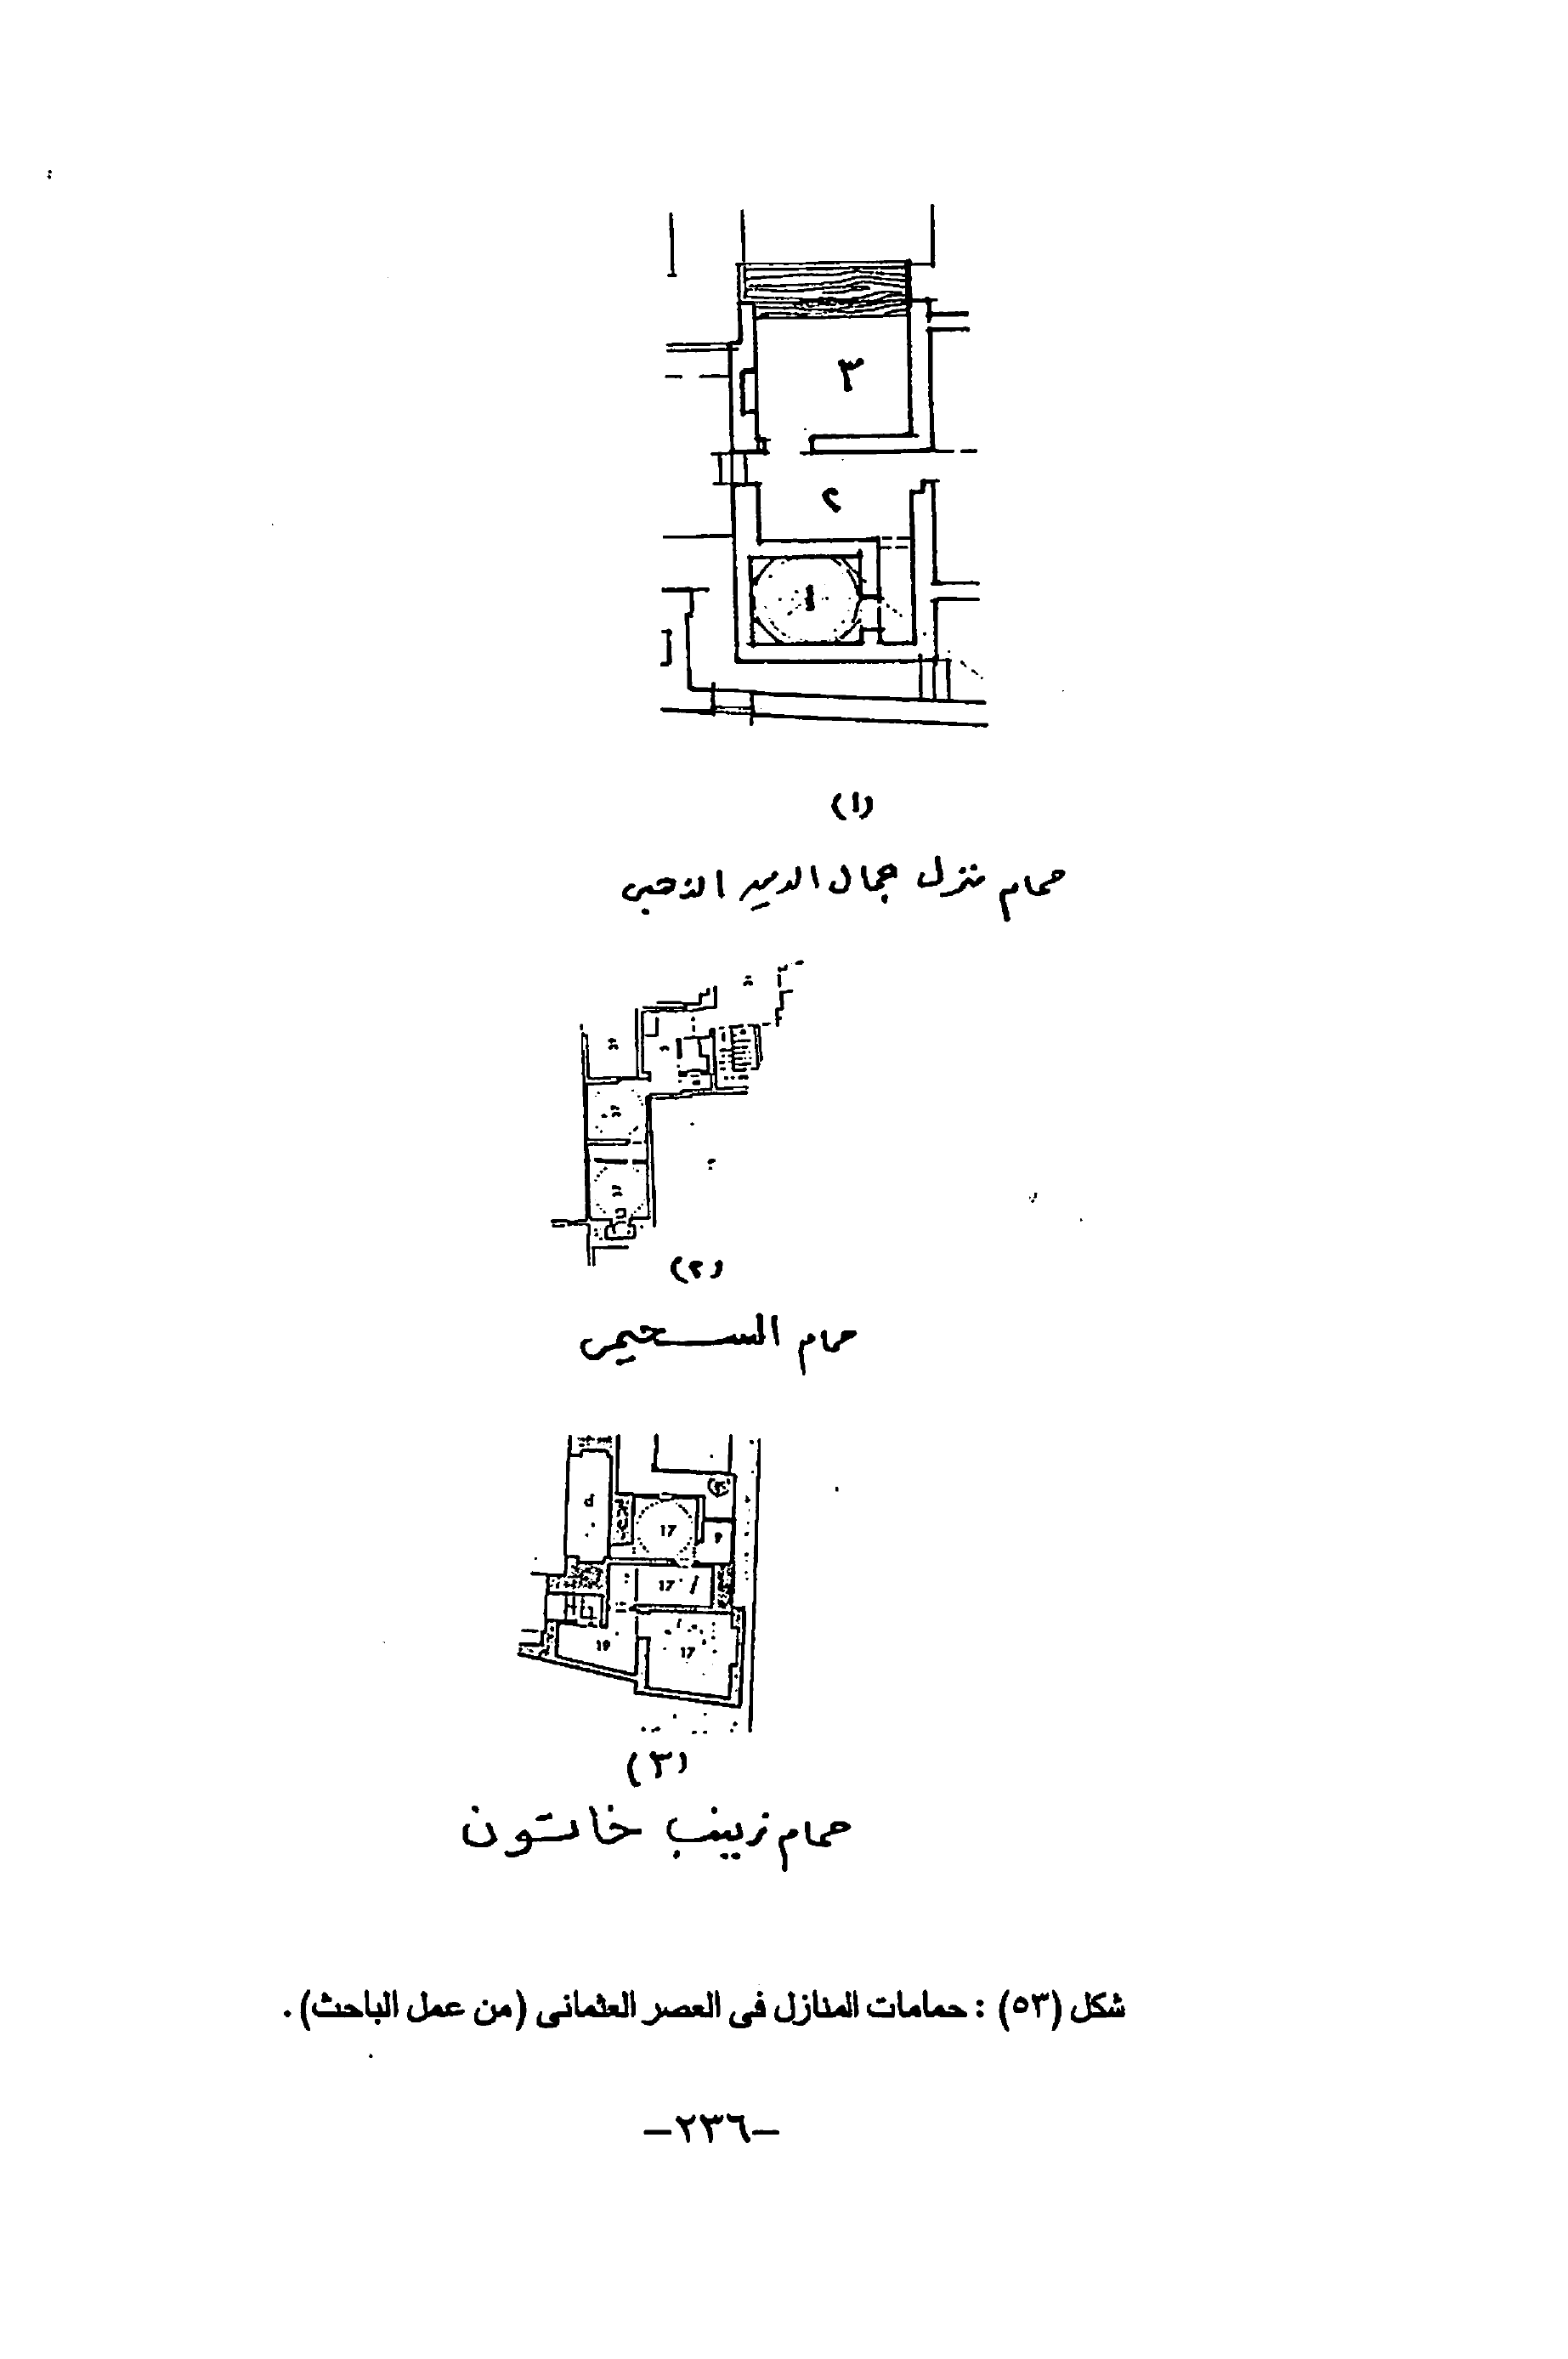 ٣
٢
١
(١)
حمام منزل جمال الدين الذهبى
(٢)
حمام السحيمى
17
17
19
17
(٣)
حمام زينب خاتون
شكل (٥٣) : حمامات المنازل فى العصر العثمانى (من عمل الباحث) .
–٢٣٦–